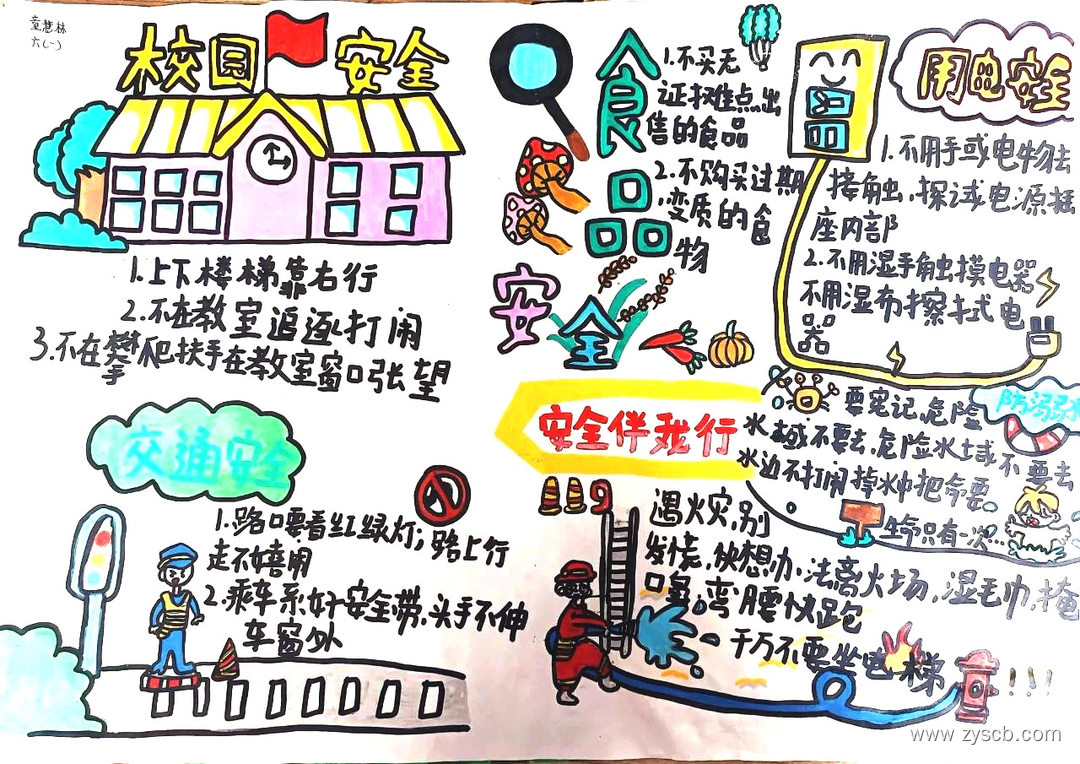 童慧林
六(一)
校园安全
1.上下楼梯靠右行
2.不在教室追逐打闹
3.不在攀爬扶手在教室窗口张望
交通安全
1.路口要看红绿灯；路上行
走不嬉闹
2.乘车系好安全带,头手不伸
车窗外
食品安全
1.不买无
证摊点出
售的食品
2.不购买过期
变质的食
物
用电安全
1.不用手或电物去
接触,探试电源插
座内部
2.不用湿手触摸电器
不用湿布擦拭电
器
安全伴我行
防溺水
要牢记,危险
水域不要去,危险水域不要去
水边不打闹掉水中把命要
生命只有一次...
119
遇火灾,别
发慌,快想办法离火场,湿毛巾,掩
口鼻,弯腰快跑
千万不要坐电梯!!!
www.zyscb.com